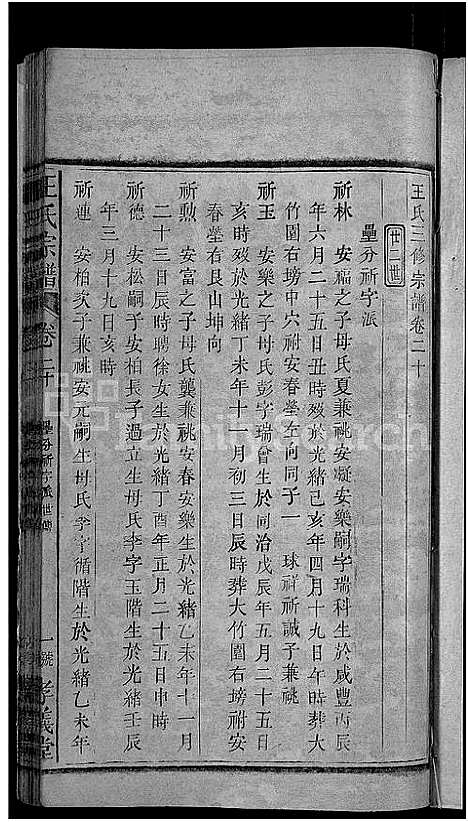 王氏三修宗譜卷二十
廿二世
壘分祈字派
祈林 安福之子母氏夏兼祧安凝安樂嗣字瑞科生於咸豐丙辰
年六月二十五日丑時歿於光緒己亥年四月十九日午時葬大
竹園右塝中穴祔安春塋左向同子一 球祥祈誠子兼祧
祈玉 安樂之子母氏彭字瑞會生於同治戊辰年五月二十五日
亥時歿於光緒丁未年十一月初三日辰時葬大竹園右塝祔安
春塋右艮山坤向
祈勲 安富之子母氏龔兼祧安春安樂生於光緒乙未年十一月
二十三日辰時聘徐女生於光緒丁酉年正月二十五日申時
祈德 安松嗣子安柏長子過立生母氏李字玉階生於光緒壬辰
年三月十九日亥時
祈蓮 安柏次子兼祧安元嗣生母氏李字循階生於光緒乙未年
王氏宗譜 卷二十 壘分祈字派世傳 一號 孝義堂